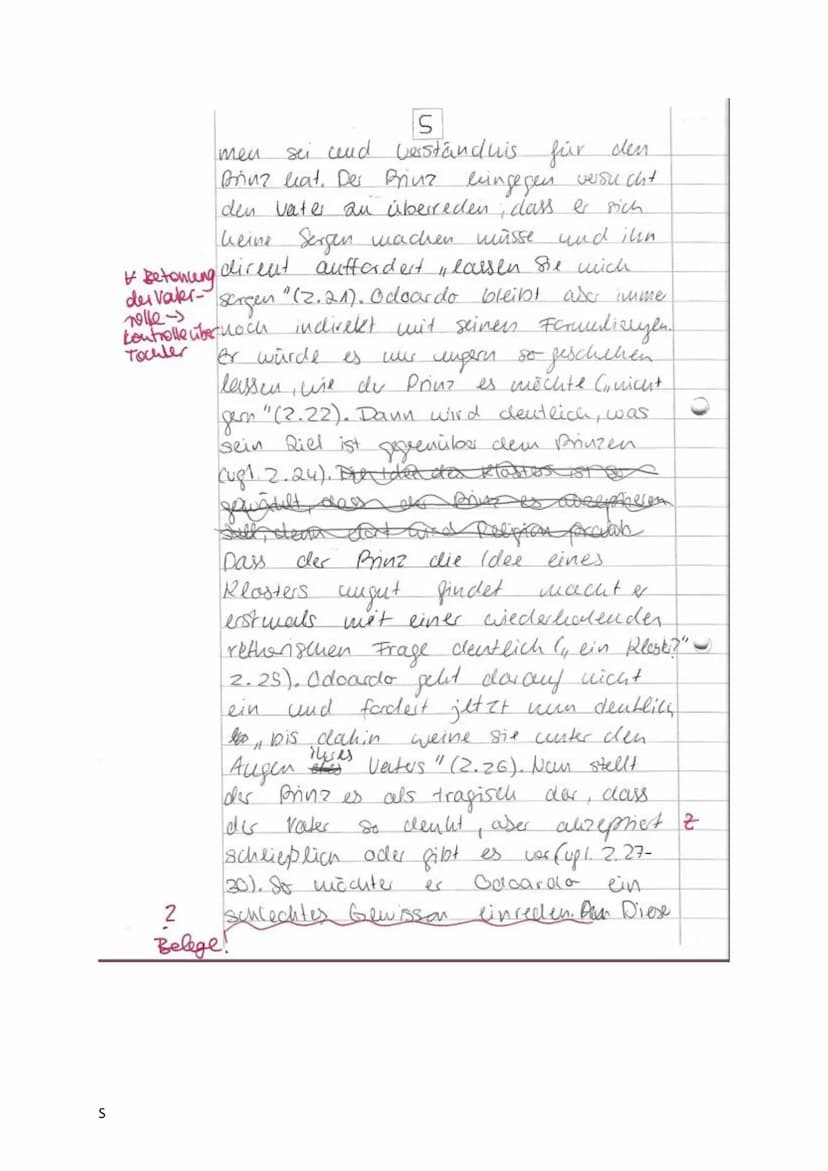 5
men sei und Verständnis für den
Prinz hat. Der Prinz hingegen versucht
den Vater zu überreden, dass er sich
keine Sorgen machen müsse und ihn
direkt auffordert „lassen Sie mich
∀ Betonung
der Vater-
rolle →
Kontrolle über
Tochter
sorgen“ (Z.21). Odoardo bleibt aber imme
noch indirekt mit seinen Formulierungen.
Er würde es nur ungern so geschehen
lassen, wie der Prinz es möchte („nicht
gern“ (Z.22). Dann wird deutlich, was
sein Ziel ist gegenüber dem Prinzen
(vgl. Z.24). Die Idee des Klosters ist so
gewählt, dass der Prinz es akzeptieren
soll, denn dort wird Religion
Dass der Prinz die Idee eines
Klosters ungut findet macht er
erstmals mit einer wiederholenden
rethorischen Frage deutlich („ein Kloster?“
Z.25). Odoardo geht darauf nicht
ein und fordert jetzt nun deutlich
„bis dahin weine sie unter den
Augen ihres Vaters“ (Z.26). Nun stellt
der Prinz es als tragisch dar, dass
der Vater so denkt, aber akzeptiert
Z
schließlich oder gibt es vor (vgl. Z.27-
30). So möchter er Odoardo ein
schlechtes Gewissen einreden. Diese
?
Belege!
5